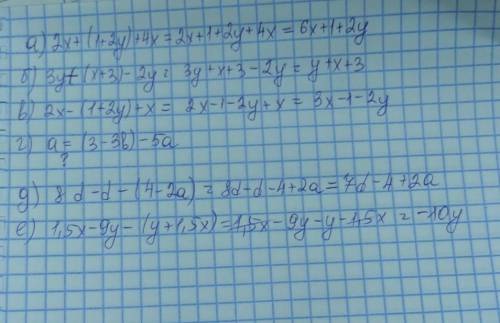 а) 2x+(1+2y)+4x=2x+1+2y+4x=6x+1+2y
б) 3y+(x+3)-2y= 3y+x+3-2y=y+x+3
в) 2x-(1+2y)+x= 2x-1-2y+x=3x-1-2y
г) a=(3-3b)-5a
?
д) 8d-d-(4-2a)=8d-d-4+2a=7d-4+2a
е) 1,5x-9y-(y+1,5x)=1,5x-9y-y-1,5x=-10y